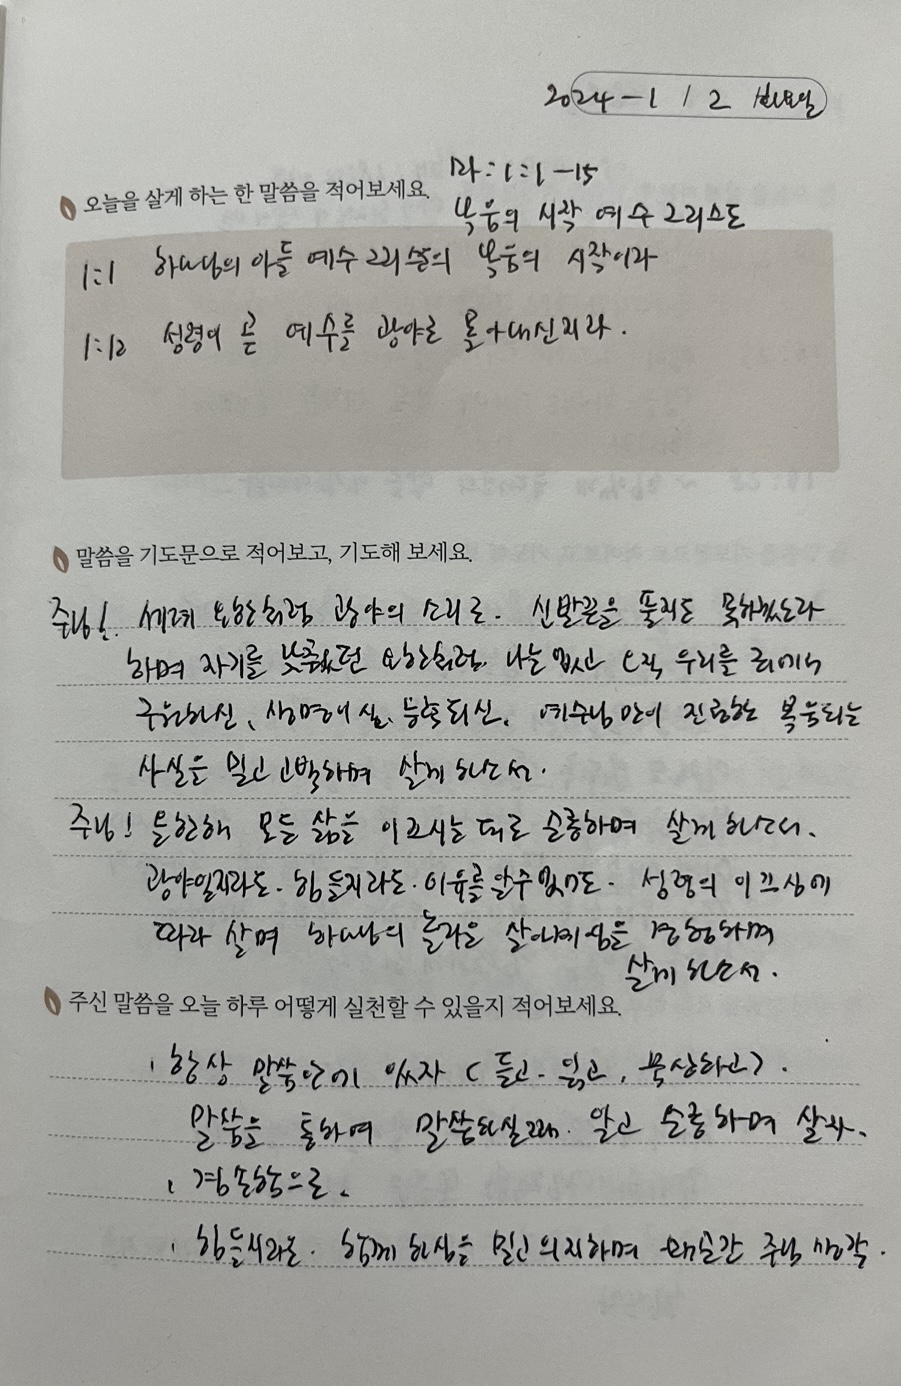 2024-1/2 화요일
막:1:1-15
오늘을 살게 하는 한 말씀을 적어보세요.
복음의 시작 예수 그리스도
1:1 하나님의 아들 예수 그리스도의 복음의 시작이라
1:12 성령이 곧 예수를 광야로 몰아내신지라.
말씀을 기도문으로 적어보고, 기도해 보세요.
주님! 세례 요한처럼 광야의 소리로. 신발끈을 풀지도 못하겠노라
하며 자기를 낮추었던 요한처럼. 나는 없고 오직 우리를 죄에서
구원하신, 생명이신, 능력되신, 예수님만이 진정한 복음되는
사실을 믿고 고백하며 살게 하소서.
주님! 올한해 모든 삶을 이끄시는 대로 순종하며 살게 하소서.
광야일지라도. 힘들지라도. 이유를 알수 없어도. 성령의 이끄심에
따라 살며 하나님의 놀라운 살아계심을 경험하며
살게 하소서.
주신 말씀을 오늘 하루 어떻게 실천할 수 있을지 적어보세요.
항상 말씀안에 있자 (듣고. 읽고, 묵상하고).
말씀을 통하여 말씀하실때. 알고 순종하며 살자.
겸손함으로.
함께 하심을 믿고 의지하며 매순간 주님 생각.